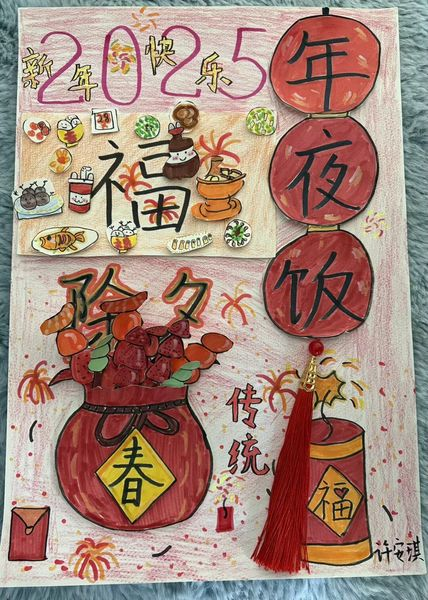 新年快乐
2025
年夜饭
福
除夕
传统
春
福
许安琪